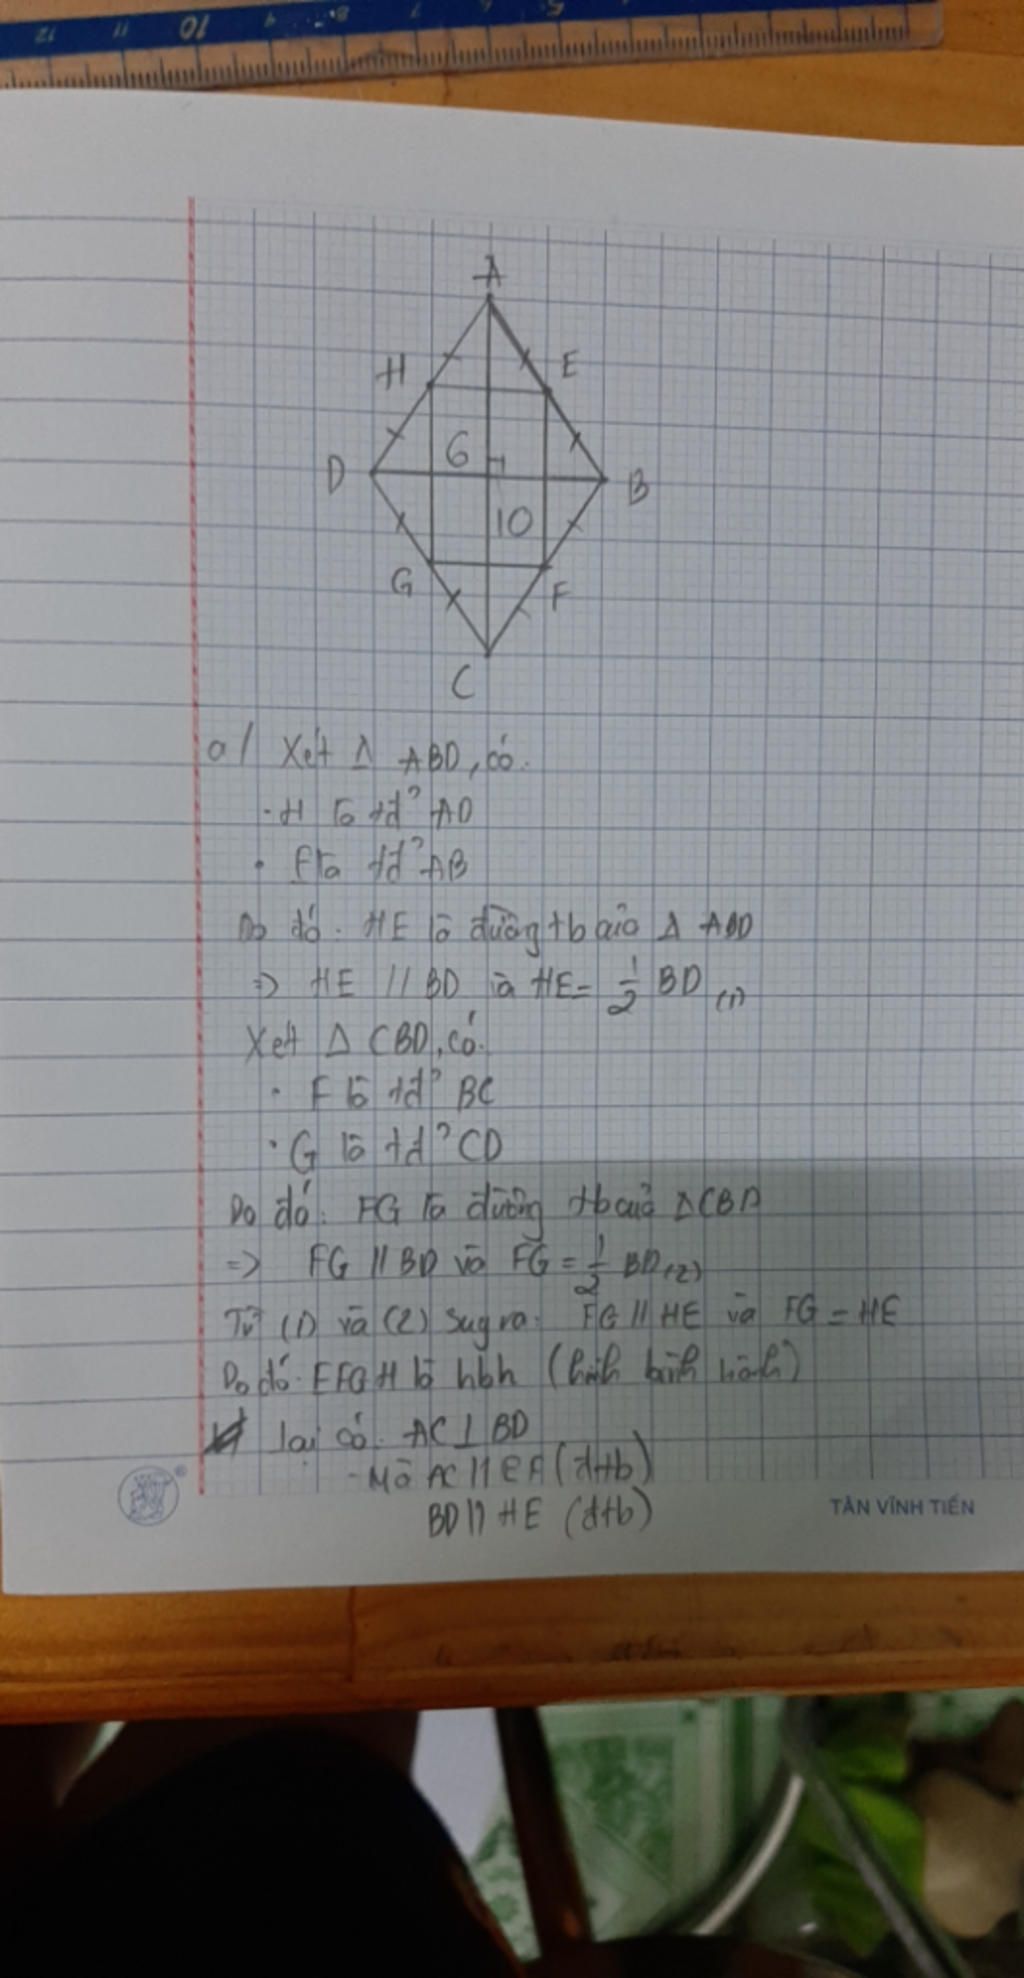 12 11 10 9 8 7 6 5
A
H E
6
D B
10
G F
C
a/ Xét Δ ABD, có:
· H là tđ? AD
· E là tđ? AB
Do đó: HE là đường tb của Δ ABD
=> HE // BD và HE = 1/2 BD (1)
Xét Δ CBD, có:
· F là tđ? BC
· G là tđ? CD
Do đó: FG là đường tb của ΔCBD
=> FG // BD và FG = 1/2 BD (2)
Từ (1) và (2) suy ra: FG // HE và FG = HE
Do đó: EFGH là hbh (hình bình hành)
lại có: AC ⊥ BD
- Mà AC // EF (đtb)
BD // HE (đtb)
TÂN VĨNH TIẾN